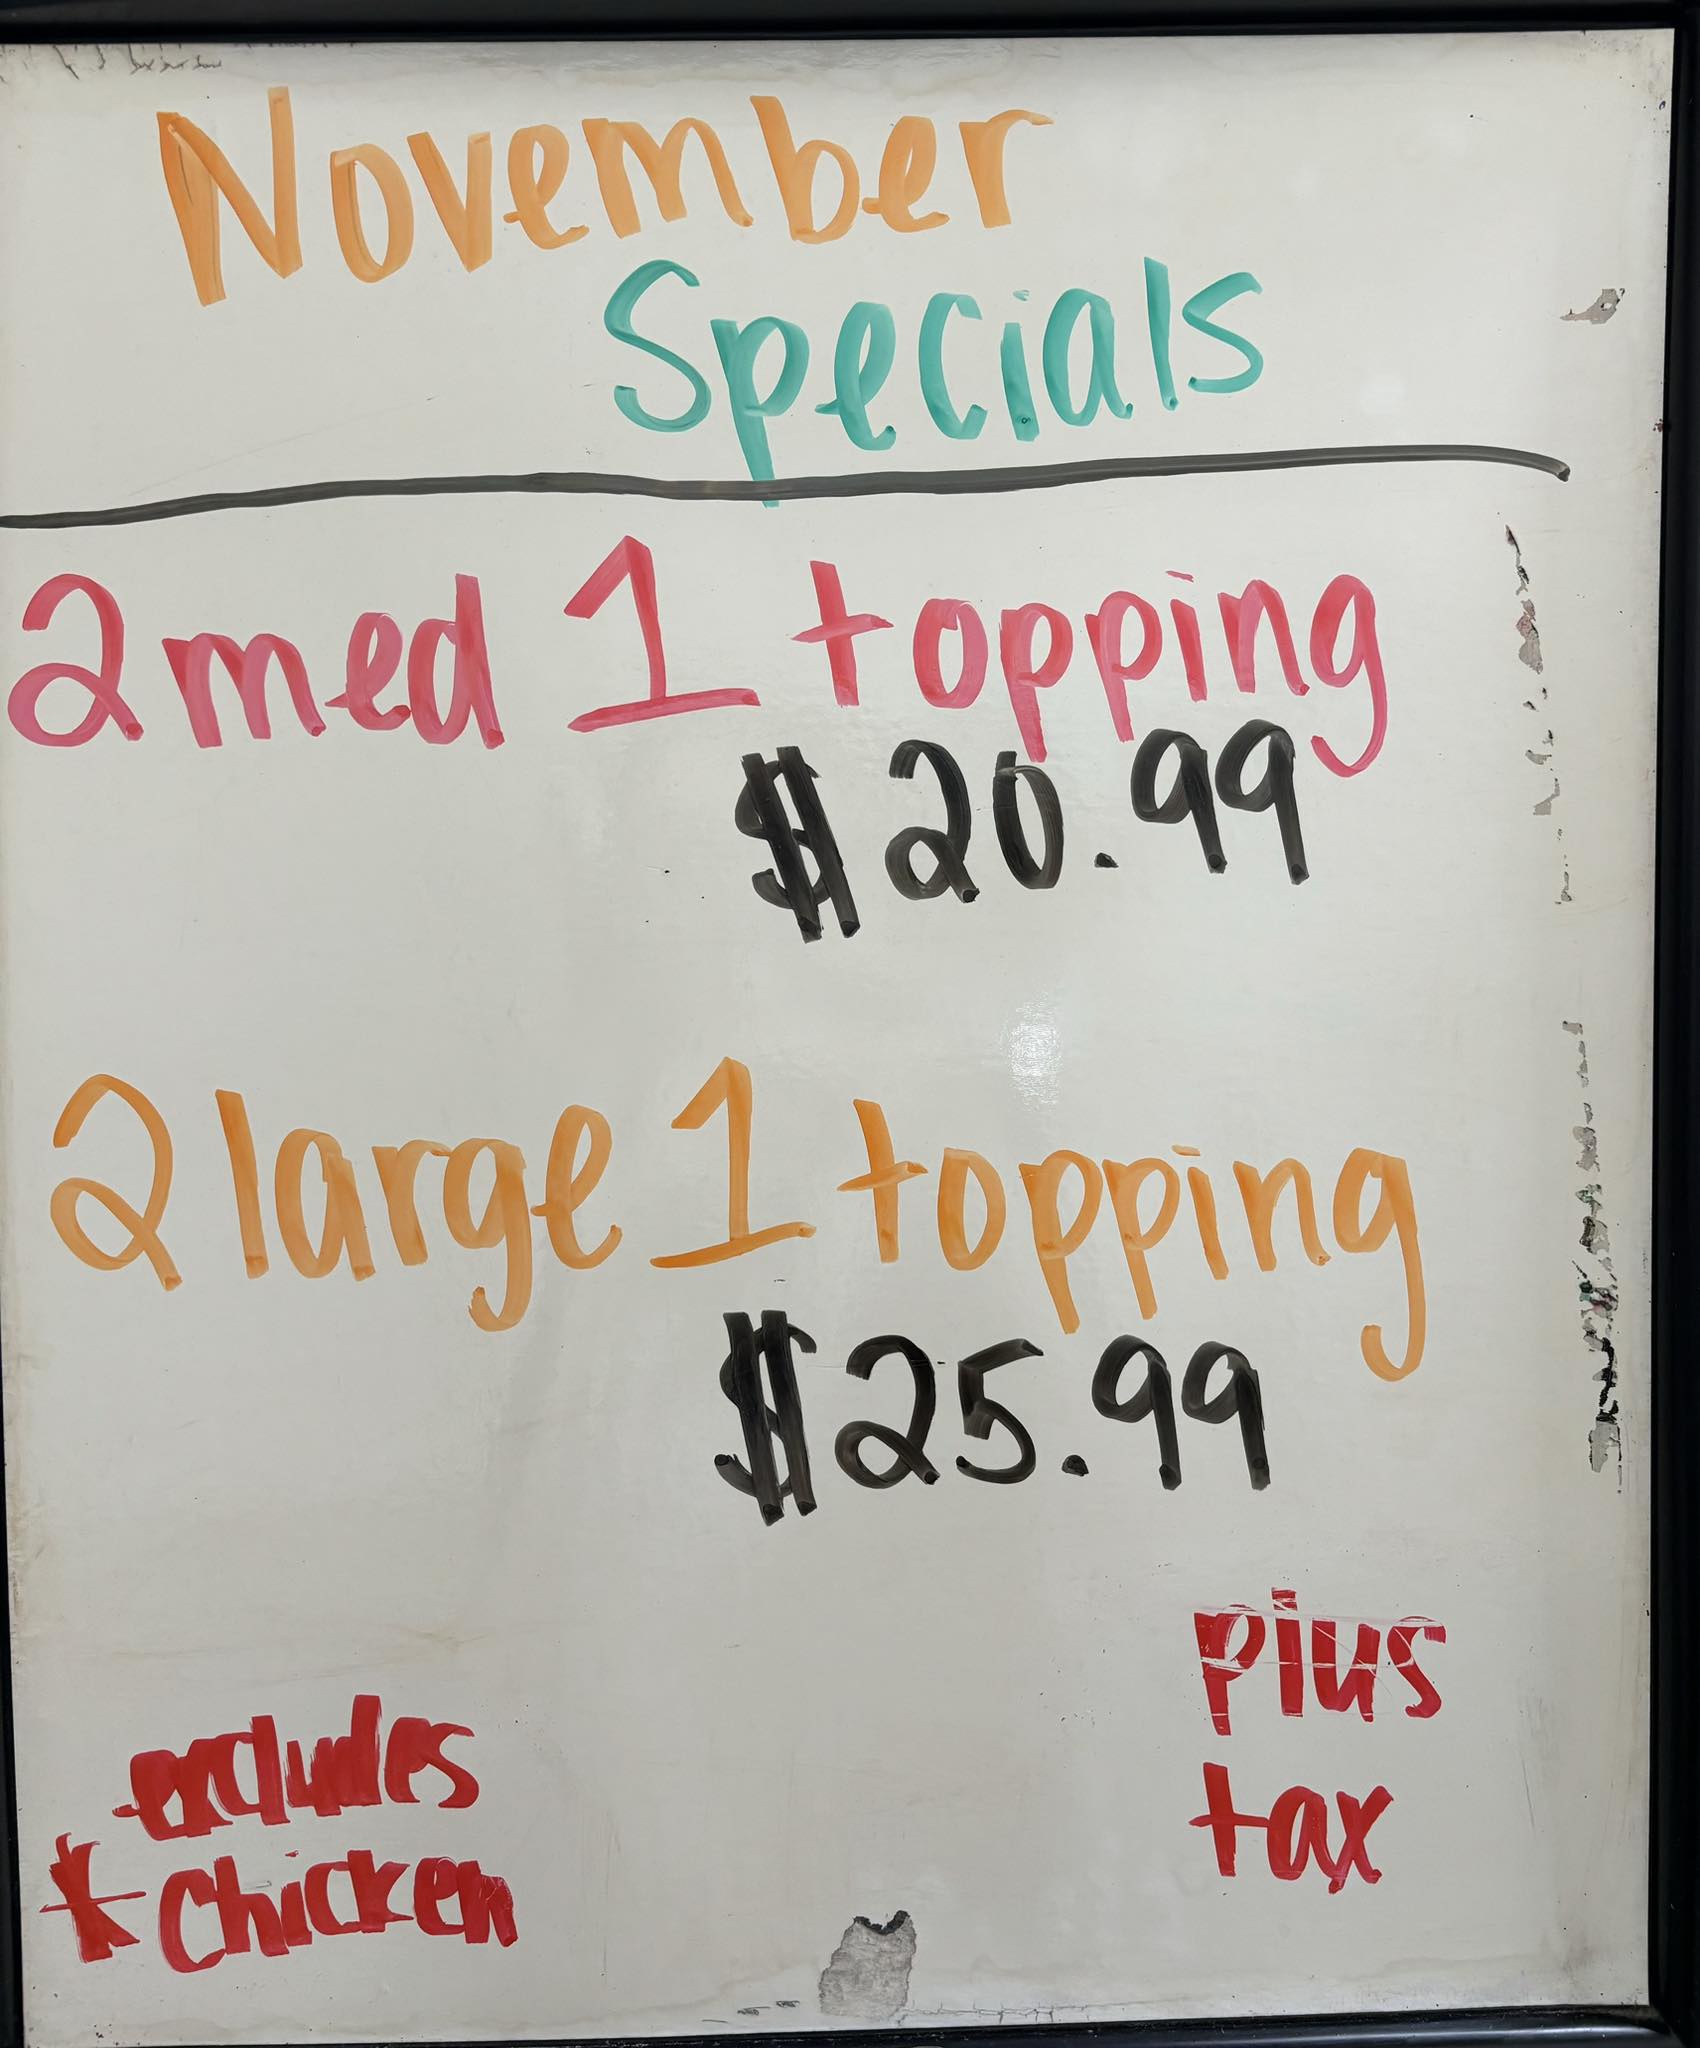 November
Specials
2 med 1 topping
$20.99
2 large 1 topping
$25.99
plus
tax
excludes
* Chicken